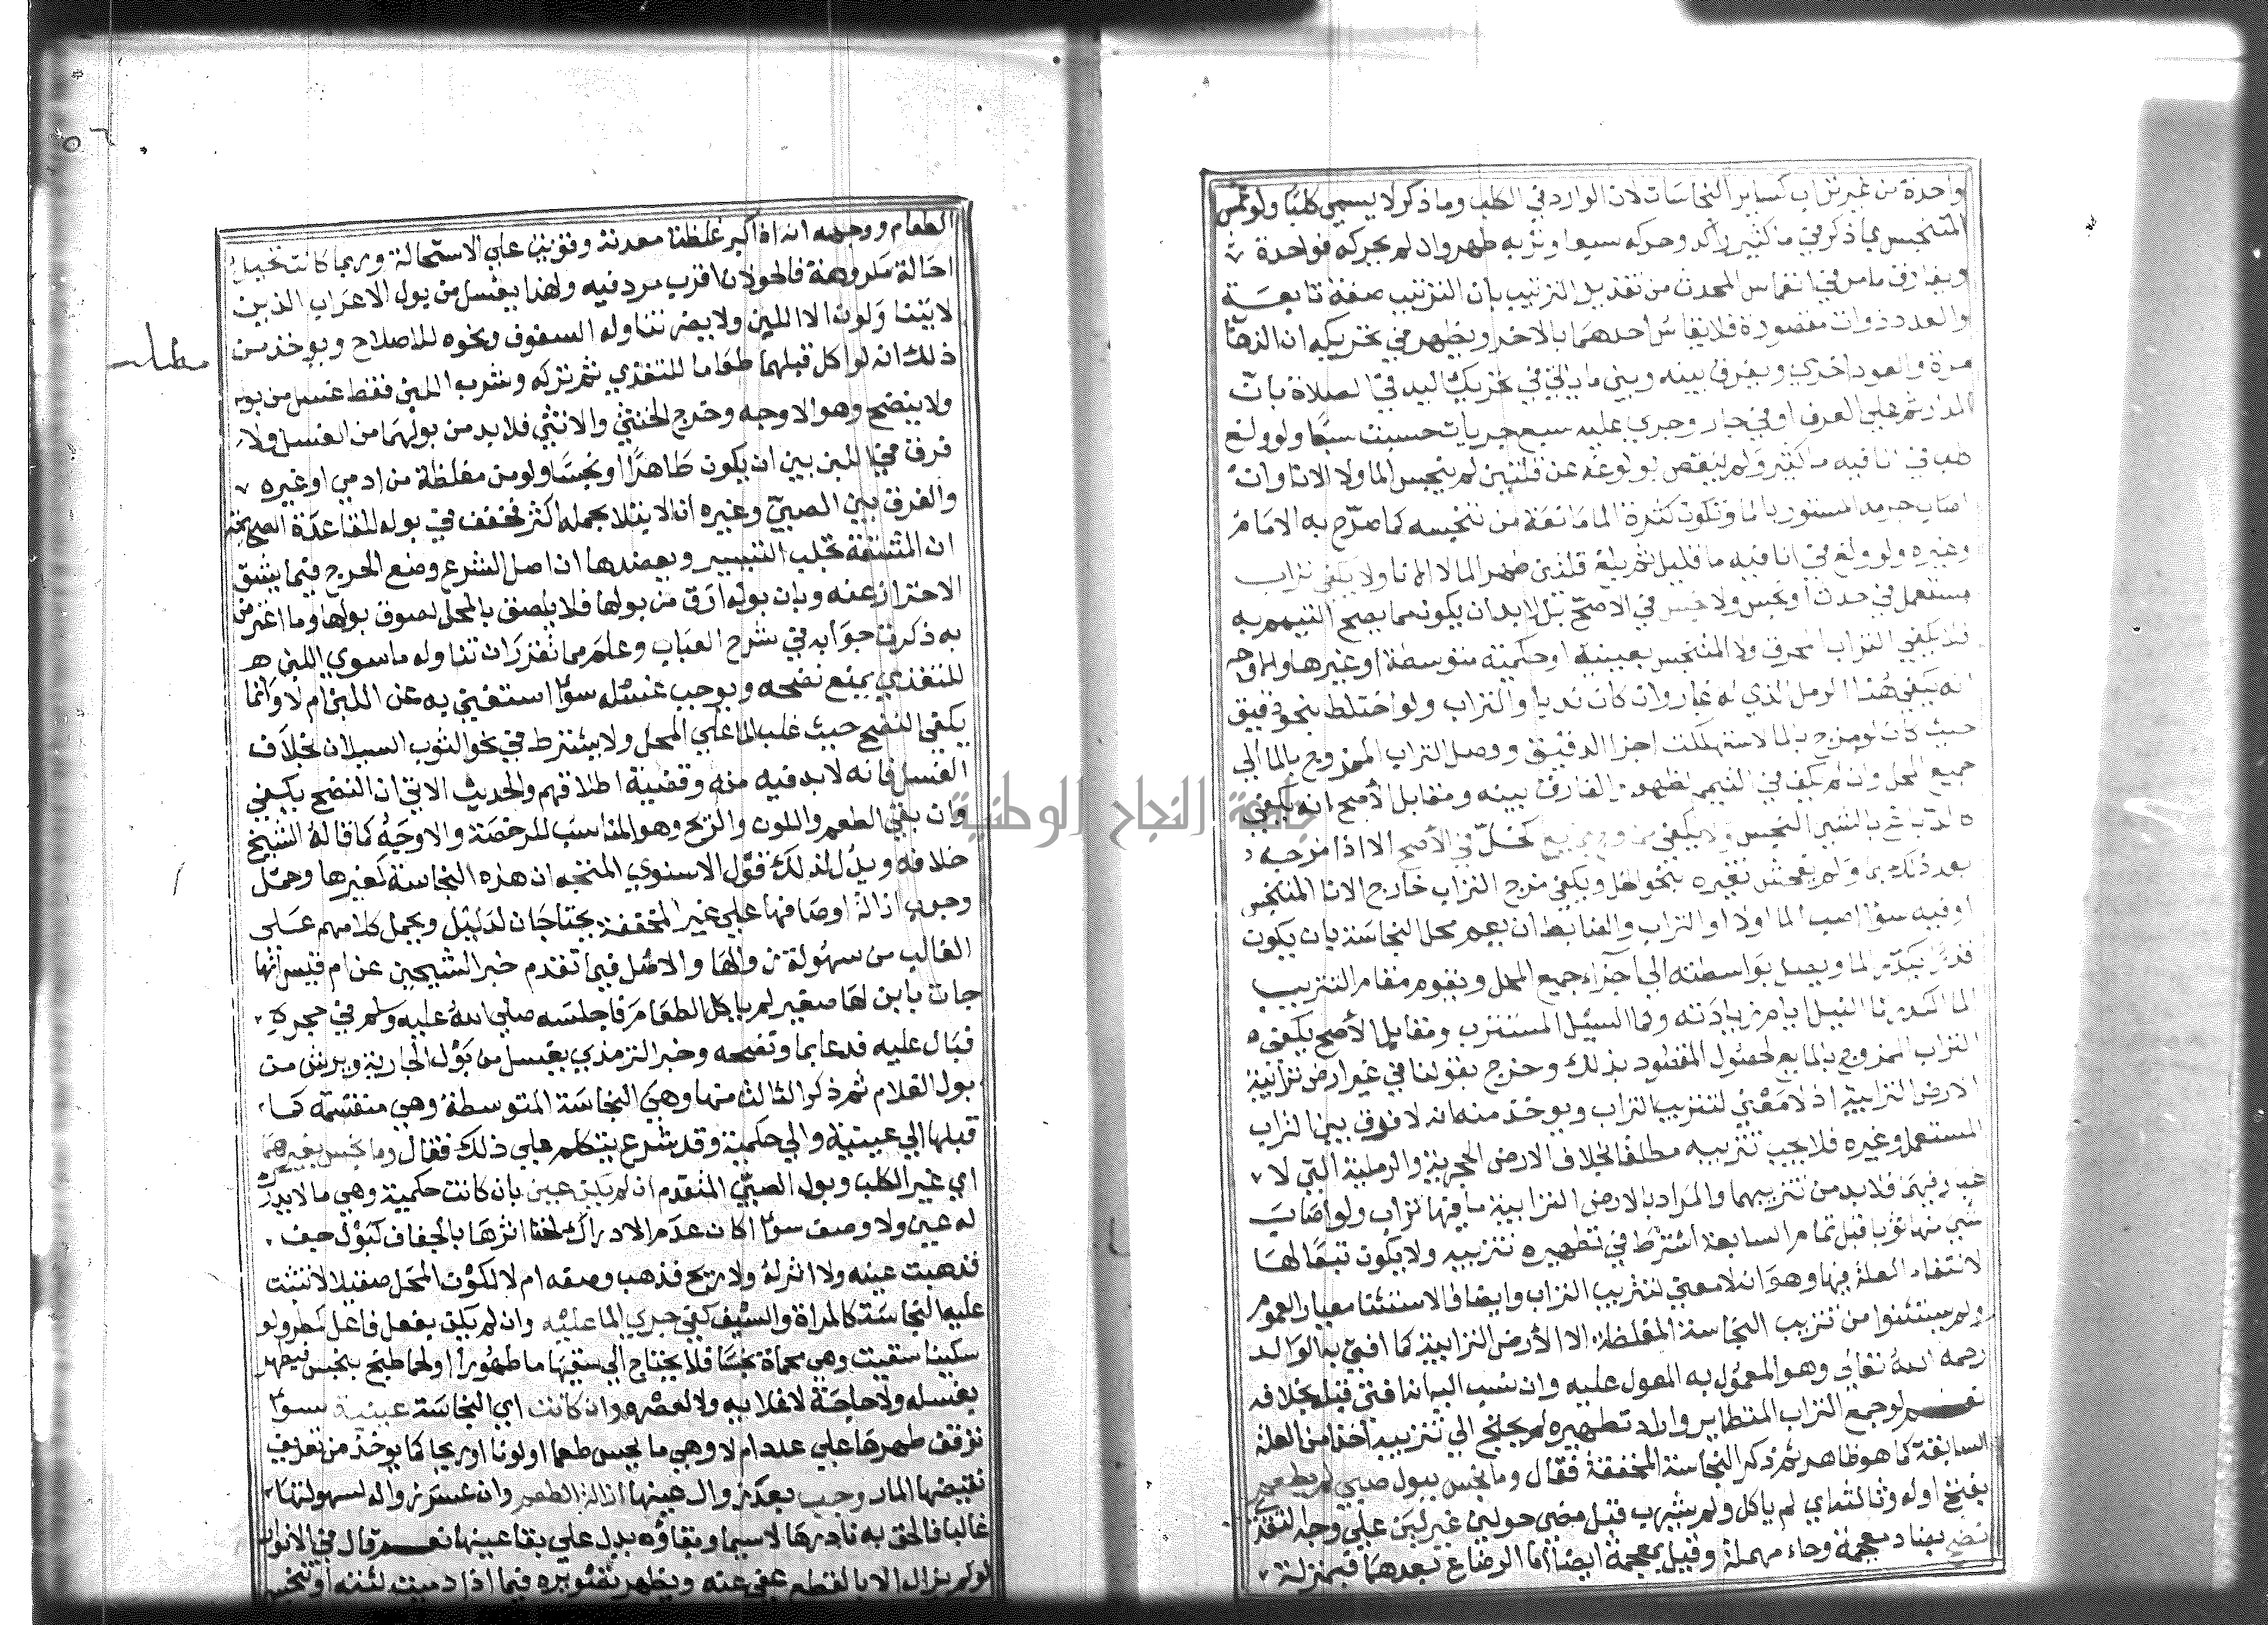 واحدة من غير تراب كساير النجاسات لان الوارد في الكلب وما ذكر لا يسمى كلبا ولو غمس
المتنجس بما ذكر في ما كثير راكد وحركه سبعا وتربه طهر وان لم يحركه فواحدة
ويفارق ما مر في انغماس المحدث من تقدير الترتيب بان الترتيب صفة تابعة
والعدد ذوات مقصودة فلا يقاس احدهما بالاخر ويظهر في تحريكه ان الذهاب
مرة والعود اخرى ويفرق بينه وبين ما ياتي في تحريك اليد في الصلاة بان
المدار ثم على العرف او في جار وجري عليه سبع جريات حسبت سبعا ولو ولغ
كلب في انا فيه ما كثير ولم ينقص بولوغه عن قلتين لم ينجس الما ولا الانا وان
اصاب جرمه المستور بالما وتكون كثرة الما مانعة من تنجيسه كما صرح به الامام
وغيره ولو ولغ في انا فيه ما قليل ثم بلغ قلتين طهر الما لا الانا ولا يكفي تراب
مستعمل في حدث او نجس ولا نجس في الاصح بل لا بد ان يكون مما يصح التيمم به
فلا يكفي التراب المحرق ولا المتنجس بعينية او حكمية متوسطة او غيرها والاوجه
انه يكفي هنا الرمل الذي له غبار وان كان نديا والتراب ولو اختلط بنحو دقيق
حيث كان لو مزج بالما لاستهلكت اجزا الدقيق ووصل التراب الممزوج بالما الي
جميع المحل وان لم يكف في التيمم لظهور الفارق بينه ومقابل الاصح انه يكفي
بالشير النجس ولا يكفي ممزوج بمايع كخل في الاصح الا اذا مزجه
بعد ذلك بما ولم يفحش تغيره بنحو الخل ويكفي مزج التراب خارج الانا المتنجس
او فيه سوا اصب الما اولا او التراب والضابط ان يعم محل النجاسة بان يكون
قدرا يكدر الما ويصل بواسطته الي اجزاء جميع المحل ويقوم مقام التتريب
الما الكدر كما النيل ايام زيادته وكما السيل المستترب ومقابل الاصح يكفي
التراب الممزوج بالمايع لحصول المقصود بذلك وخرج بقولنا في غير ارض ترابية
الارض الترابية اذ لا معني لتتريب التراب ويوخذ منه انه لا فرق بين التراب
المستعمل وغيره فلا يجب تتريبه مطلقا بخلاف الارض الحجرية والرملية التي لا
غبار فيهما فلا بد من تتريبهما والمراد بالارض الترابية ما فيها تراب ولو اصاب
شي منها ثوبا قبل تمام السابعة اشترط في تطهيره تتريبه ولا يكون تبعا لها
لانتفاء العلة فيها وهو انه لا معني لتتريب التراب وايضا فالاستثنا معيار العموم
ولم يستثنوا من تتريب النجاسة المغلظة الا الارض الترابية كما افتي به الوالد
رحمه الله تعالي وهو المعمول به المعول عليه وان نسب اليه انه افتي قبل بخلافه
نعم لو جمع التراب المتطاير واراد تطهيره لم يحتج الي تتريبه اخذا من العلة
السابقة كما هو ظاهر ثم ذكر النجاسة المخففة فقال وما نجس ببول صبي لم يطعم
بفتح اوله وثالثه اي لم ياكل ولم يشرب قبل مضي حولين غير لبن علي وجه التغذي
نضح بضاد معجمة وحاء مهملة وقيل معجمة ايضا اما الرضاع بعدهما فبمنزلة
الطعام ووجهه انه اذا كبر غلظت معدته وقويت علي الاستحالة وربما كانت تحيل
احالة مكروهة فالحولان اقرب مرد فيه ولهذا يغسل من بول الاعراب الذين
لا يتناولون الا اللبن ولا يضر تناوله السفوف ونحوه للاصلاح ويوخذ من
ذلك انه لو اكل قبلهما طعاما للتغذي ثم تركه وشرب اللبن فقط غسل من بوله
ولا ينضح وهو الاوجه وخرج الخنثي والانثي فلا بد من بولهما من الغسل ولا
فرق في اللبن بين ان يكون طاهرا او نجسا ولو من مغلظة من ادمي او غيره
والفرق بين الصبي وغيره ان الابتلا بحمله اكثر فخفف في بوله للقاعدة الصحيحة
ان المشقة تجلب التيسير ويعضدها ان اصل الشرع وضع الحرج فيما يشق
الاحتراز عنه وبان بوله ارق من بولها فلا يلصق بالمحل لصوق بولها وما اعترض
به ذكرت جوابه في شرح العباب وعلم مما تقرر ان تناوله ما سوي اللبن
للتغذي يمنع نضحه ويوجب غسله سوا استغني به عن اللبن ام لا وانما
يكفي النضح حيث غلب الما علي المحل ولا يشترط في نحو الثوب السيلان بخلاف
الغسل فانه لا بد فيه منه وقضية اطلاقهم والحديث الاتي ان النضح يكفي
وان بقي الطعم واللون والريح وهو المناسب للرخصة والاوجه كما قاله الشيخ
خلافه ويدل لذلك قول الاسنوي المتجه ان هذه النجاسة كغيرها وحمل
وجوب ازالة اوصافها علي غير المخففة يحتاجان لدليل ويحمل كلامهم علي
الغالب من سهولة زوالها والاصل فيما تقدم خبر الشيخين عن ام قيس انها
جات بابن لها صغير لم ياكل الطعام فاجلسه صلي الله عليه وسلم في حجره
فبال عليه فدعا بما ونضحه وخبر الترمذي يغسل من بول الجارية ويرش من
بول الغلام ثم ذكر الثالث منها وهي النجاسة المتوسطة وهي منقسمة كما
قبلها الي عينية والي حكمية وقد شرع يتكلم علي ذلك فقال وما نجس بغيرهما
اي غير الكلب وبول الصبي المتقدم ان لم يكن عين بان كانت حكمية وهي ما لا يدرك
له عين ولا وصف سوا اكان عدم الادراك لخفا اثرها بالجفاف كبول جف
فذهبت عينه ولا اثر له ولا ريح فذهب وصفه ام لا لكون المحل صقيلا لا تثبت
عليه النجاسة كالمراة والسيف كفي جري الما عليه وان لم يكن بفعل فاعل كمطر ولو
سكينا سقيت وهي محماة نجسا فلا يحتاج الي سقيها ما طهورا او لحما طبخ بنجس فيطهر
بغسله ولا حاجة لاغلايه ولا لعصره وان كانت اي النجاسة عينية سوا
توقف طهرها علي عدد ام لا وهي ما نجس طعما او لونا او ريحا كما يوخذ من تعريف
نقيضها المار وجب بعد زوال عينها ازالة الطعم وان عسر زواله لسهولتها
غالبا فالحق به نادرها لاسيما وبقاؤه يدل علي بقا عينها نعم قال في الانوار
لو لم يزال الا بالقطع عفي عنه ويظهر تصويره فيما اذا دميت لثته او تنجس
مطلب
جامعة النجاح الوطنية